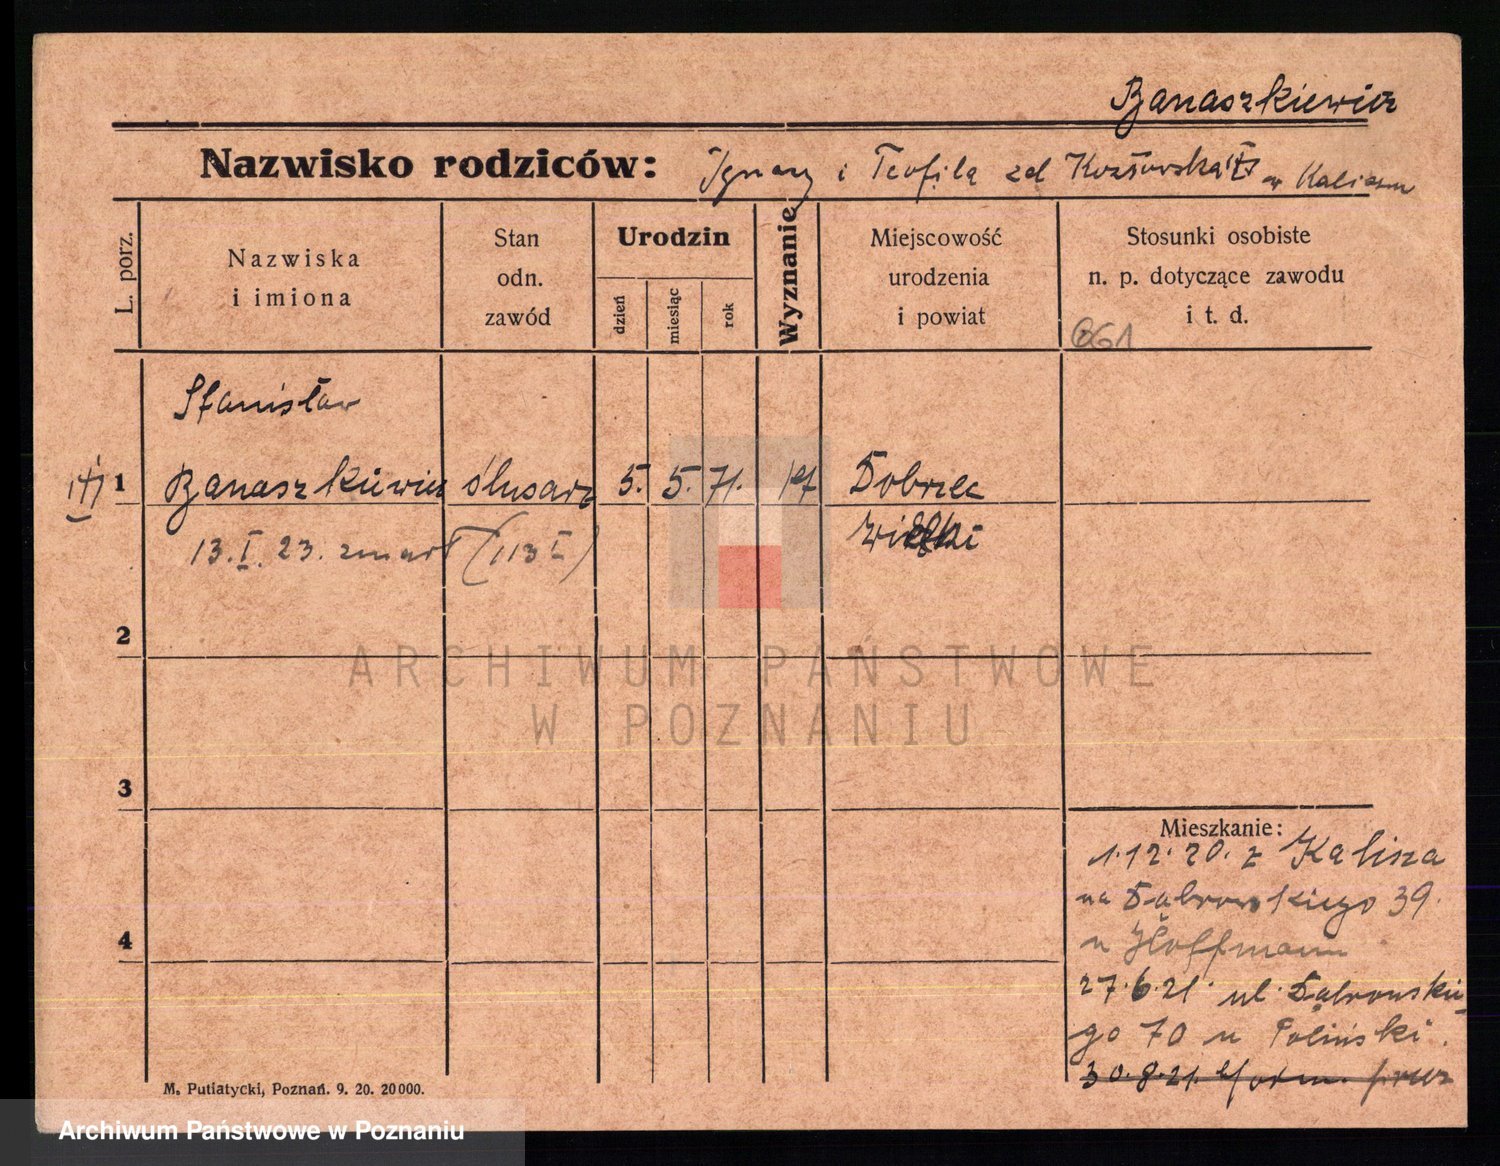 Banaszkiewicz
Nazwisko rodziców: Ignacy i Teofila zd Kozłowska w Kaliszu
L. porz.
Nazwiska
i imiona
Stan
odn.
zawód
Urodzin
dzień
miesiąc
rok
Wyznanie
Miejscowość
urodzenia
i powiat
Stosunki osobiste
n. p. dotyczące zawodu
i t. d.
661
Stanisław
1 Banaszkiewicz ślusarz 5. 5. 71. Dobrzec
13. I. 23. zmarł (113 I) wielki
2
3
4
Mieszkanie:
1.12.20. z Kalisza
na Dąbrowskiego 39.
u Hoffmann
27.6.21. ul. Dąbrowskie
go 70 u Poliński.
30.8.21.
M. Putiatycki, Poznań. 9. 20. 20000.
ARCHIWUM PAŃSTWOWE
W POZNANIU
Archiwum Państwowe w Poznaniu